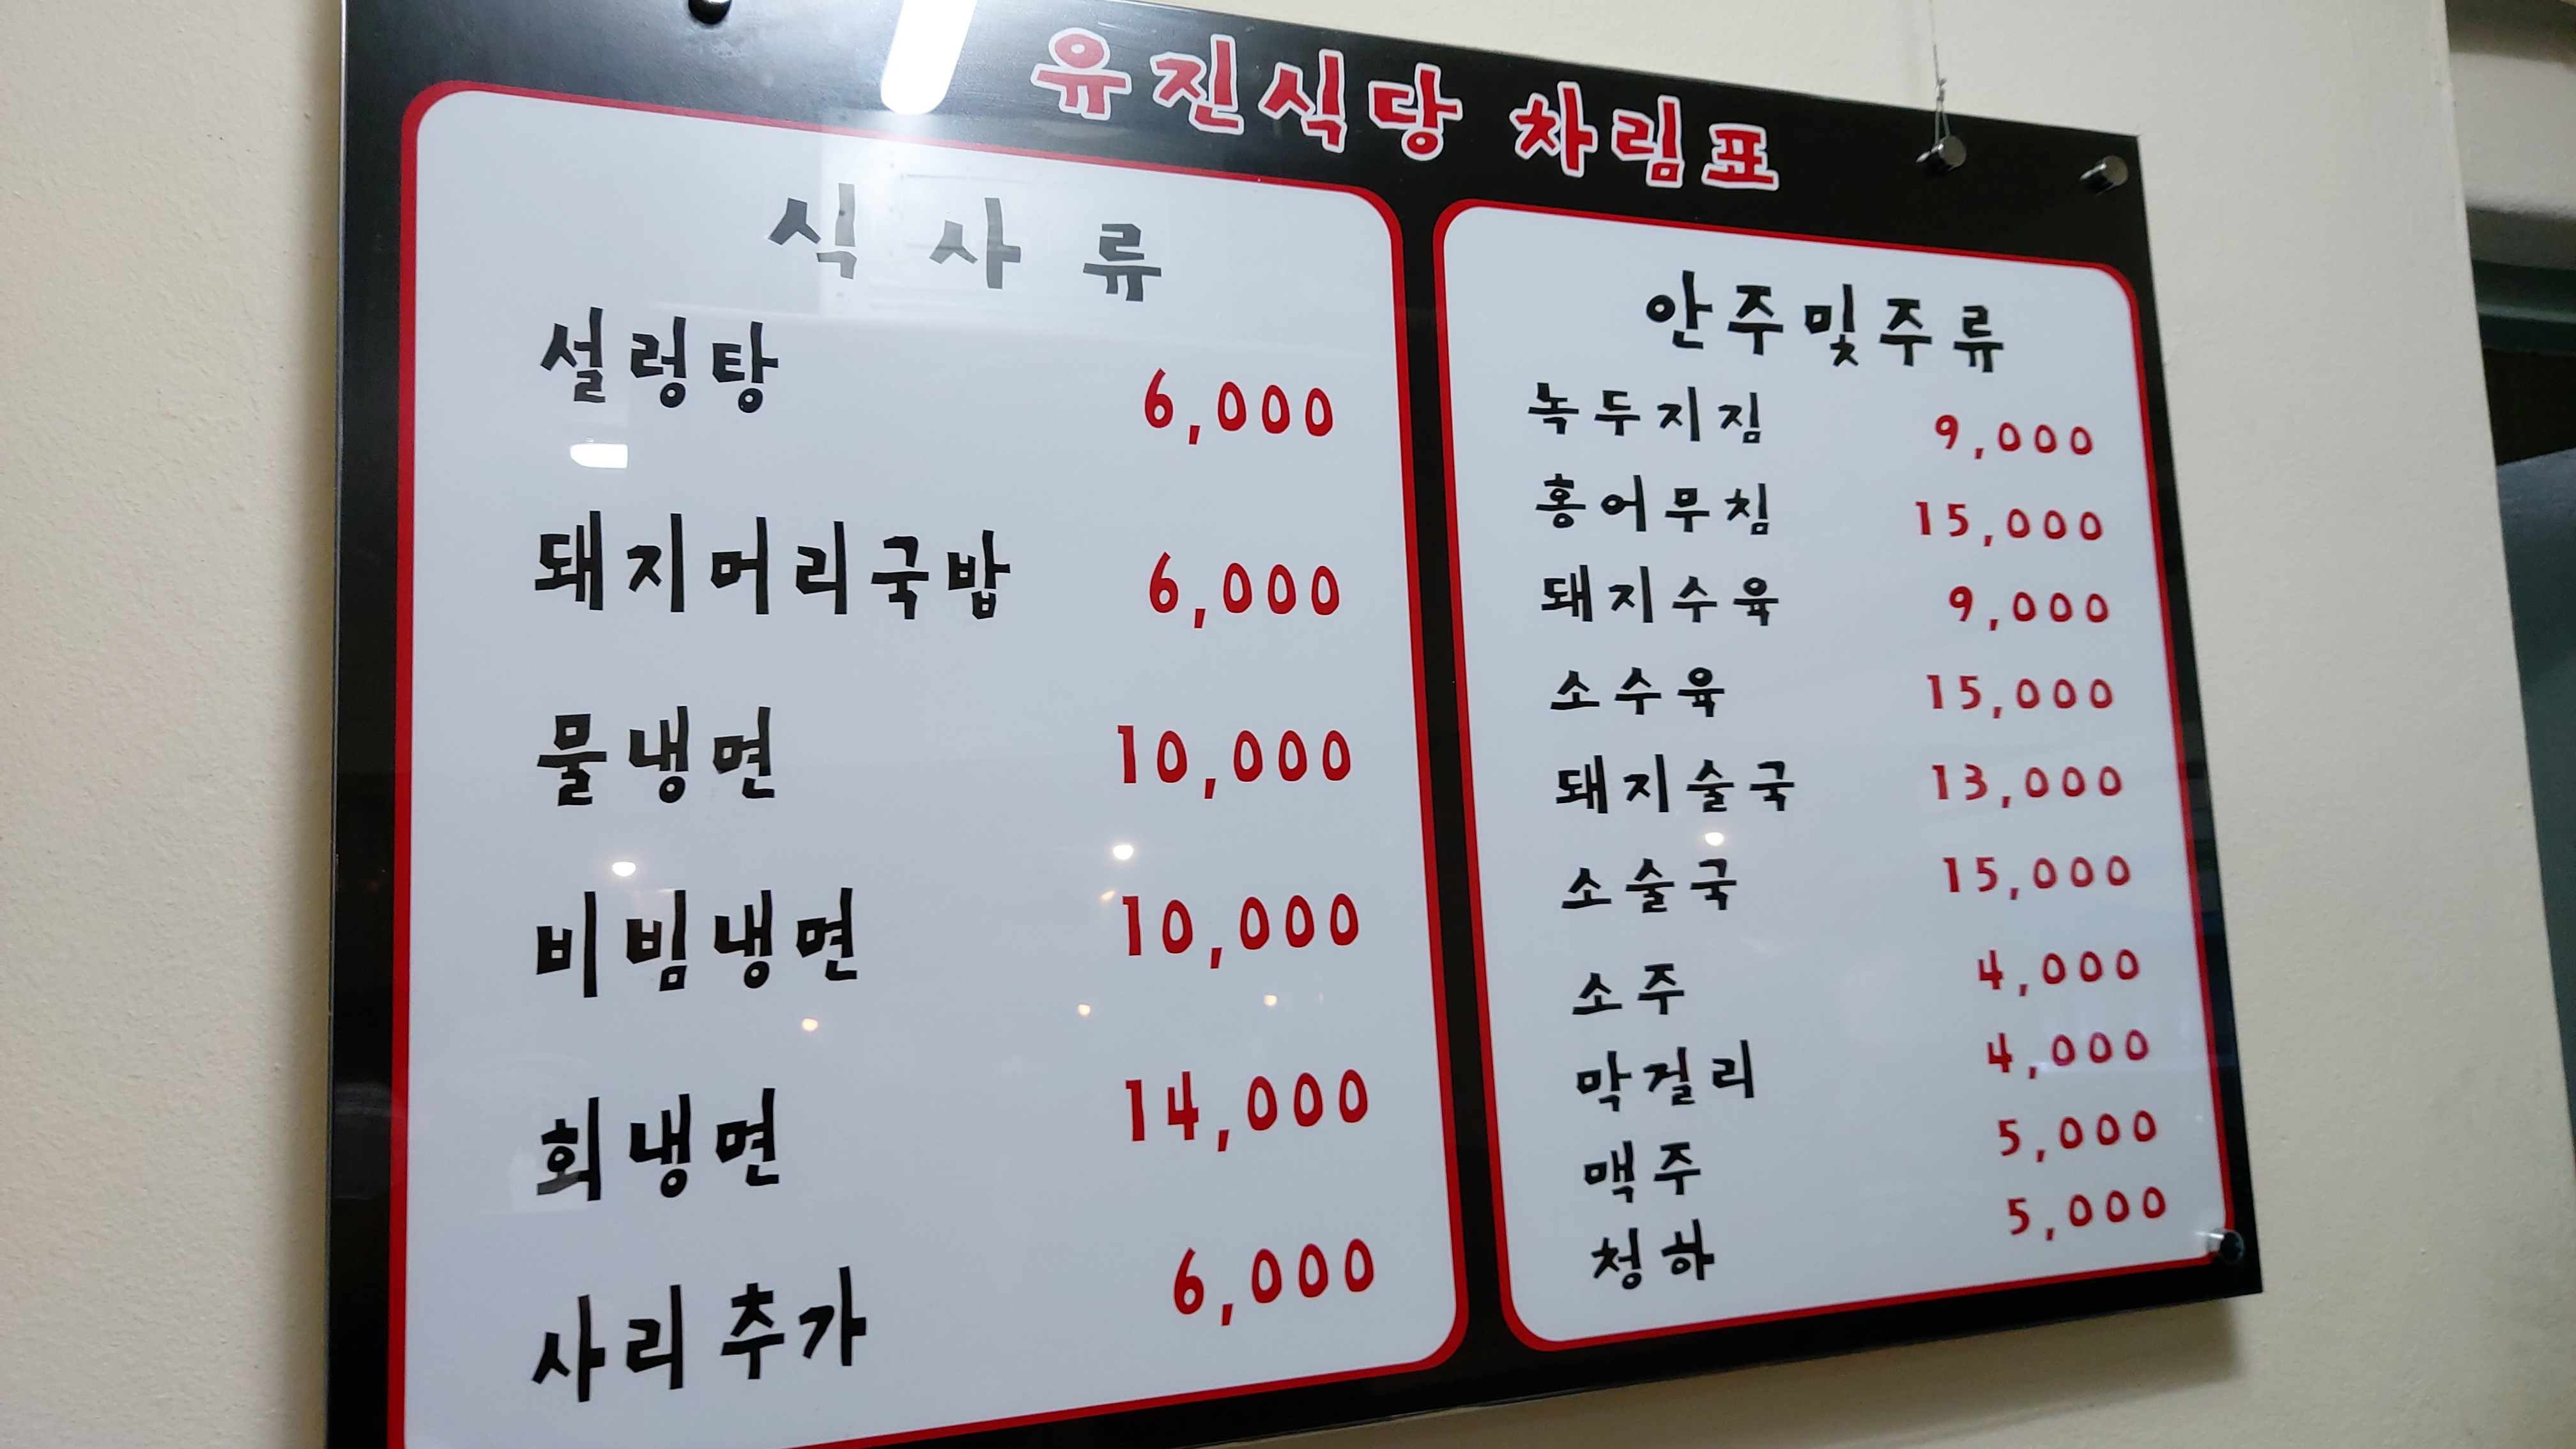 유진식당 차림표
식사류
설렁탕 6,000
돼지머리국밥 6,000
물냉면 10,000
비빔냉면 10,000
회냉면 14,000
사리 추가 6,000
안주및주류
녹두지짐 9,000
홍어무침 15,000
돼지수육 9,000
소수육 15,000
돼지술국 13,000
소술국 15,000
소주 4,000
막걸리 4,000
맥주 5,000
청하 5,000